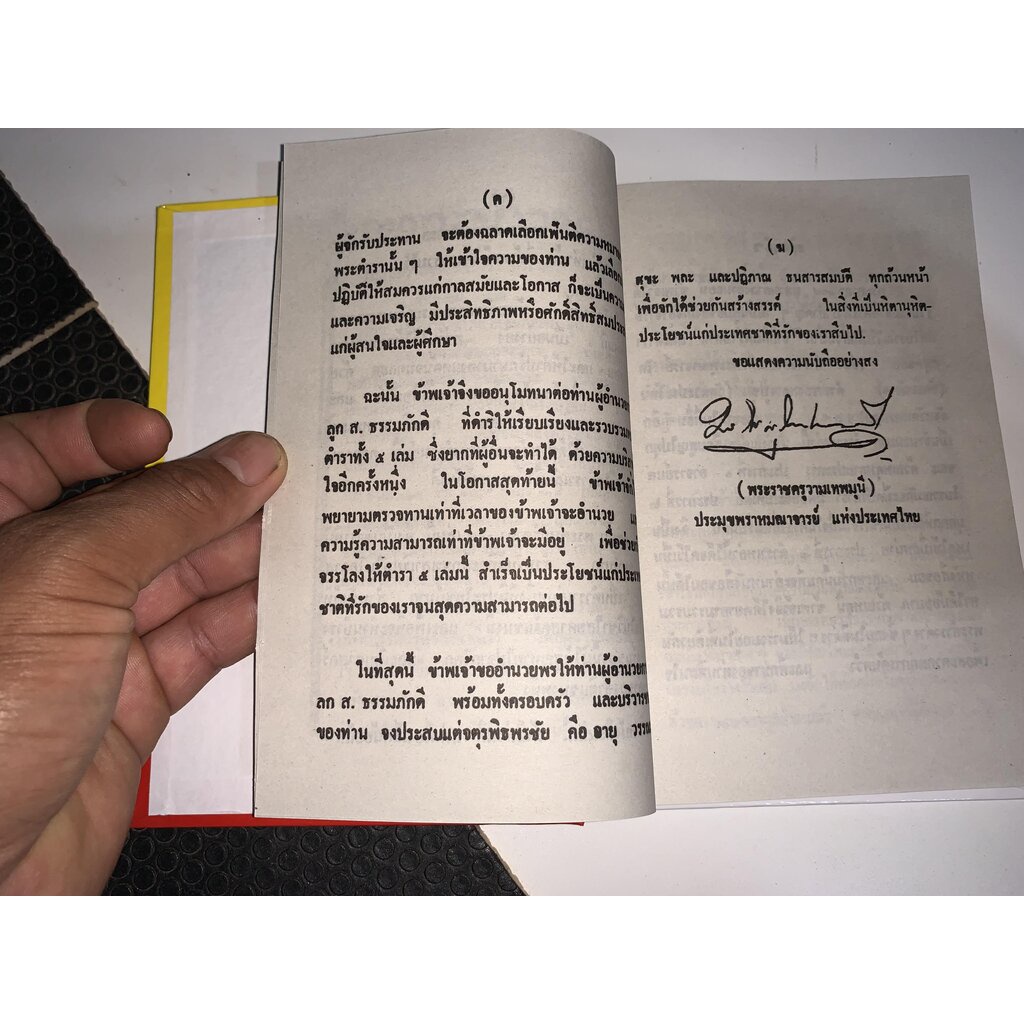 (ค)
ผู้จักรับประทาน จะต้องฉลาดเลือกเฟ้นตีความหมาย
พระตำรานั้น ๆ ให้เข้าใจความของท่าน แล้วเลือก
ปฏิบัติให้สมควรแก่กาลสมัยและโอกาส ก็จะเป็นความ
และความเจริญ มีประสิทธิภาพหรือศักดิ์สิทธิ์สมประ
แก่ผู้สนใจและผู้ศึกษา
ฉะนั้น ข้าพเจ้าจึงขออนุโมทนาต่อท่านผู้อำนวย
ลูก ส. ธรรมภักดี ที่ดำริให้เรียบเรียงและรวบรวม
ตำราทั้ง ๕ เล่ม ซึ่งยากที่ผู้อื่นจะทำได้ ด้วยความบริ
ใจอีกครั้งหนึ่ง ในโอกาสสุดท้ายนี้ ข้าพเจ้าจัก
พยายามตรวจทานเท่าที่เวลาของข้าพเจ้าจะอำนวย
ความรู้ความสามารถเท่าที่ข้าพเจ้าจะมีอยู่ เพื่อช่วย
จรรโลงให้ตำรา ๕ เล่มนี้ สำเร็จเป็นประโยชน์แก่ประเท
ชาติที่รักของเราจนสุดความสามารถต่อไป
ในที่สุดนี้ ข้าพเจ้าขออำนวยพรให้ท่านผู้อำนวยการ
ลูก ส. ธรรมภักดี พร้อมทั้งครอบครัว และบริวาร
ของท่าน จงประสบแต่จตุรพิธพรชัย คือ อายุ วรรณ
(ฆ)
สุขะ พละ และปฏิภาณ ธนสารสมบัติ ทุกถ้วนหน้า
เพื่อจักได้ช่วยกันสร้างสรรค์ ในสิ่งที่เป็นหิตานุหิต-
ประโยชน์แก่ประเทศชาติที่รักของเราสืบไป.
ขอแสดงความนับถืออย่างสูง
(พระราชครูวามเทพมุนี)
ประมุขพราหมณาจารย์ แห่งประเทศไทย